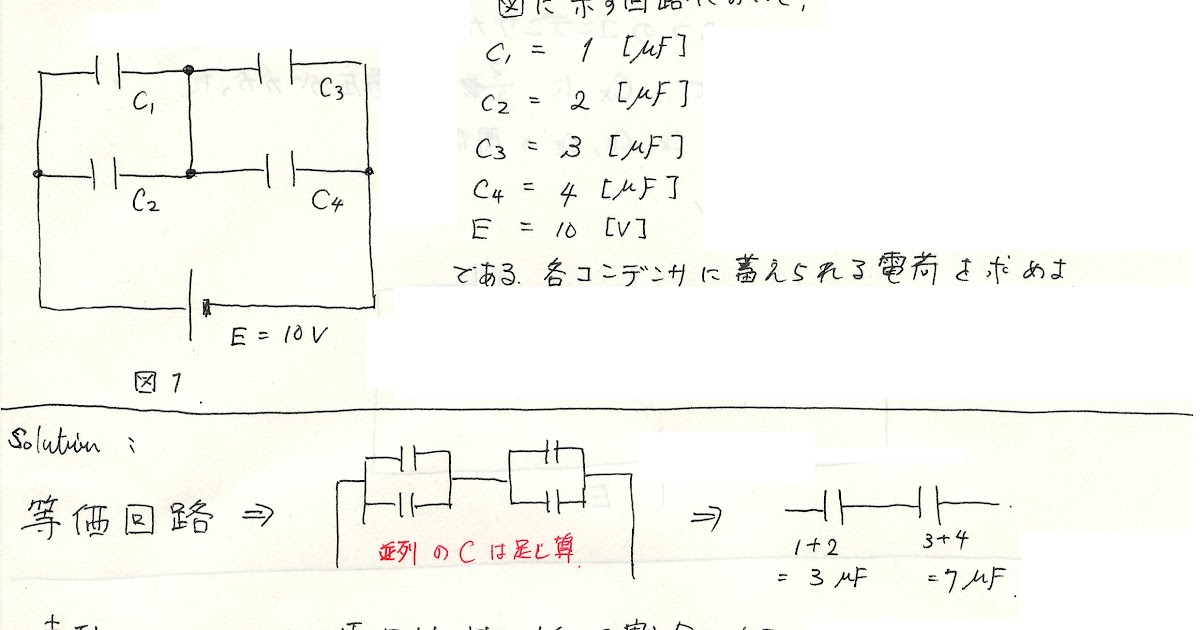 図に示す回路において,
C1 = 1 [μF]
C2 = 2 [μF]
C3 = 3 [μF]
C4 = 4 [μF]
E = 10 [V]
である. 各コンデンサに蓄えられる電荷を求めよ
C1
C3
C2
C4
E = 10V
図1.
Solution :
等価回路 ⇒
⇒
並列のCは足し算.
1+2
= 3 μF
3+4
= 7 μF.